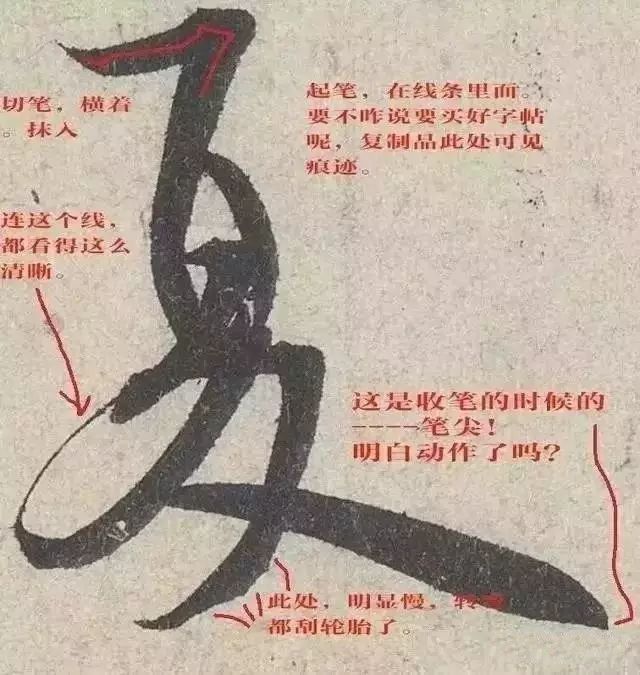 切笔，横着
。抹入
起笔，在线条里面。
要不咋说要买好字帖
呢，复制品此处可见
痕迹。
连这个线，
都看得这么
清晰。
这是收笔的时候的
----笔尖！
明白动作了吗？
此处，明显慢，转
都刮轮胎了。